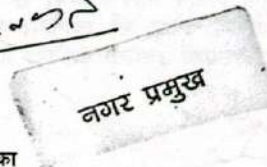 नगर प्रमुख
का